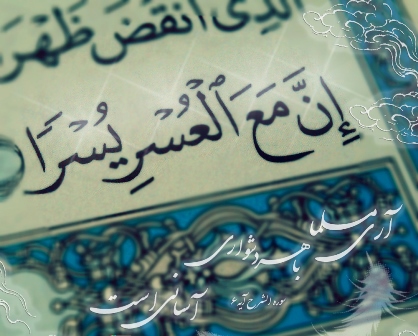 الَّذِي أَنْقَضَ ظَهْرَ
إِنَّ مَعَ الْعُسْرِ يُسْرًا
آری مسلما
با هر دشواری
آسانی است
سوره الشرح آیه ۶